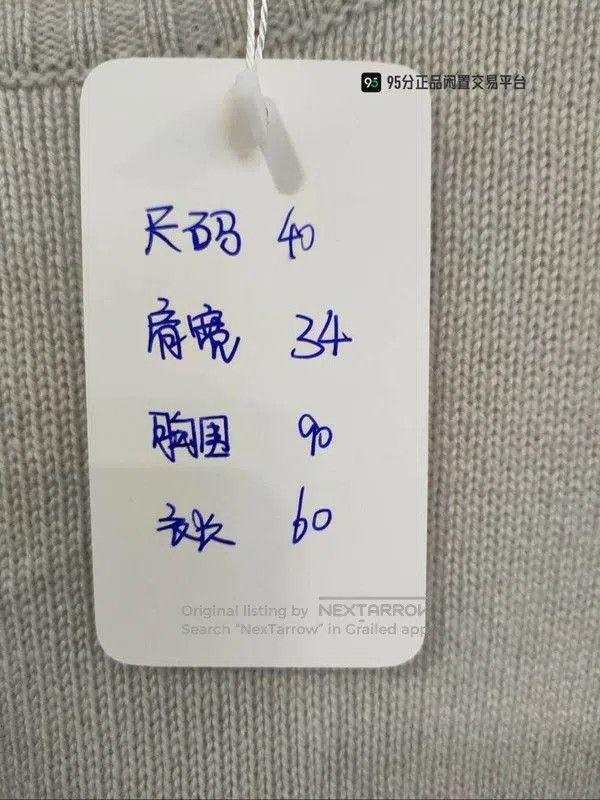 95 95分正品闲置交易平台
尺码 40
肩宽 34
胸围 90
衣长 60
Original listing by NEXTARROW
Search "NexTarrow" in Grailed app